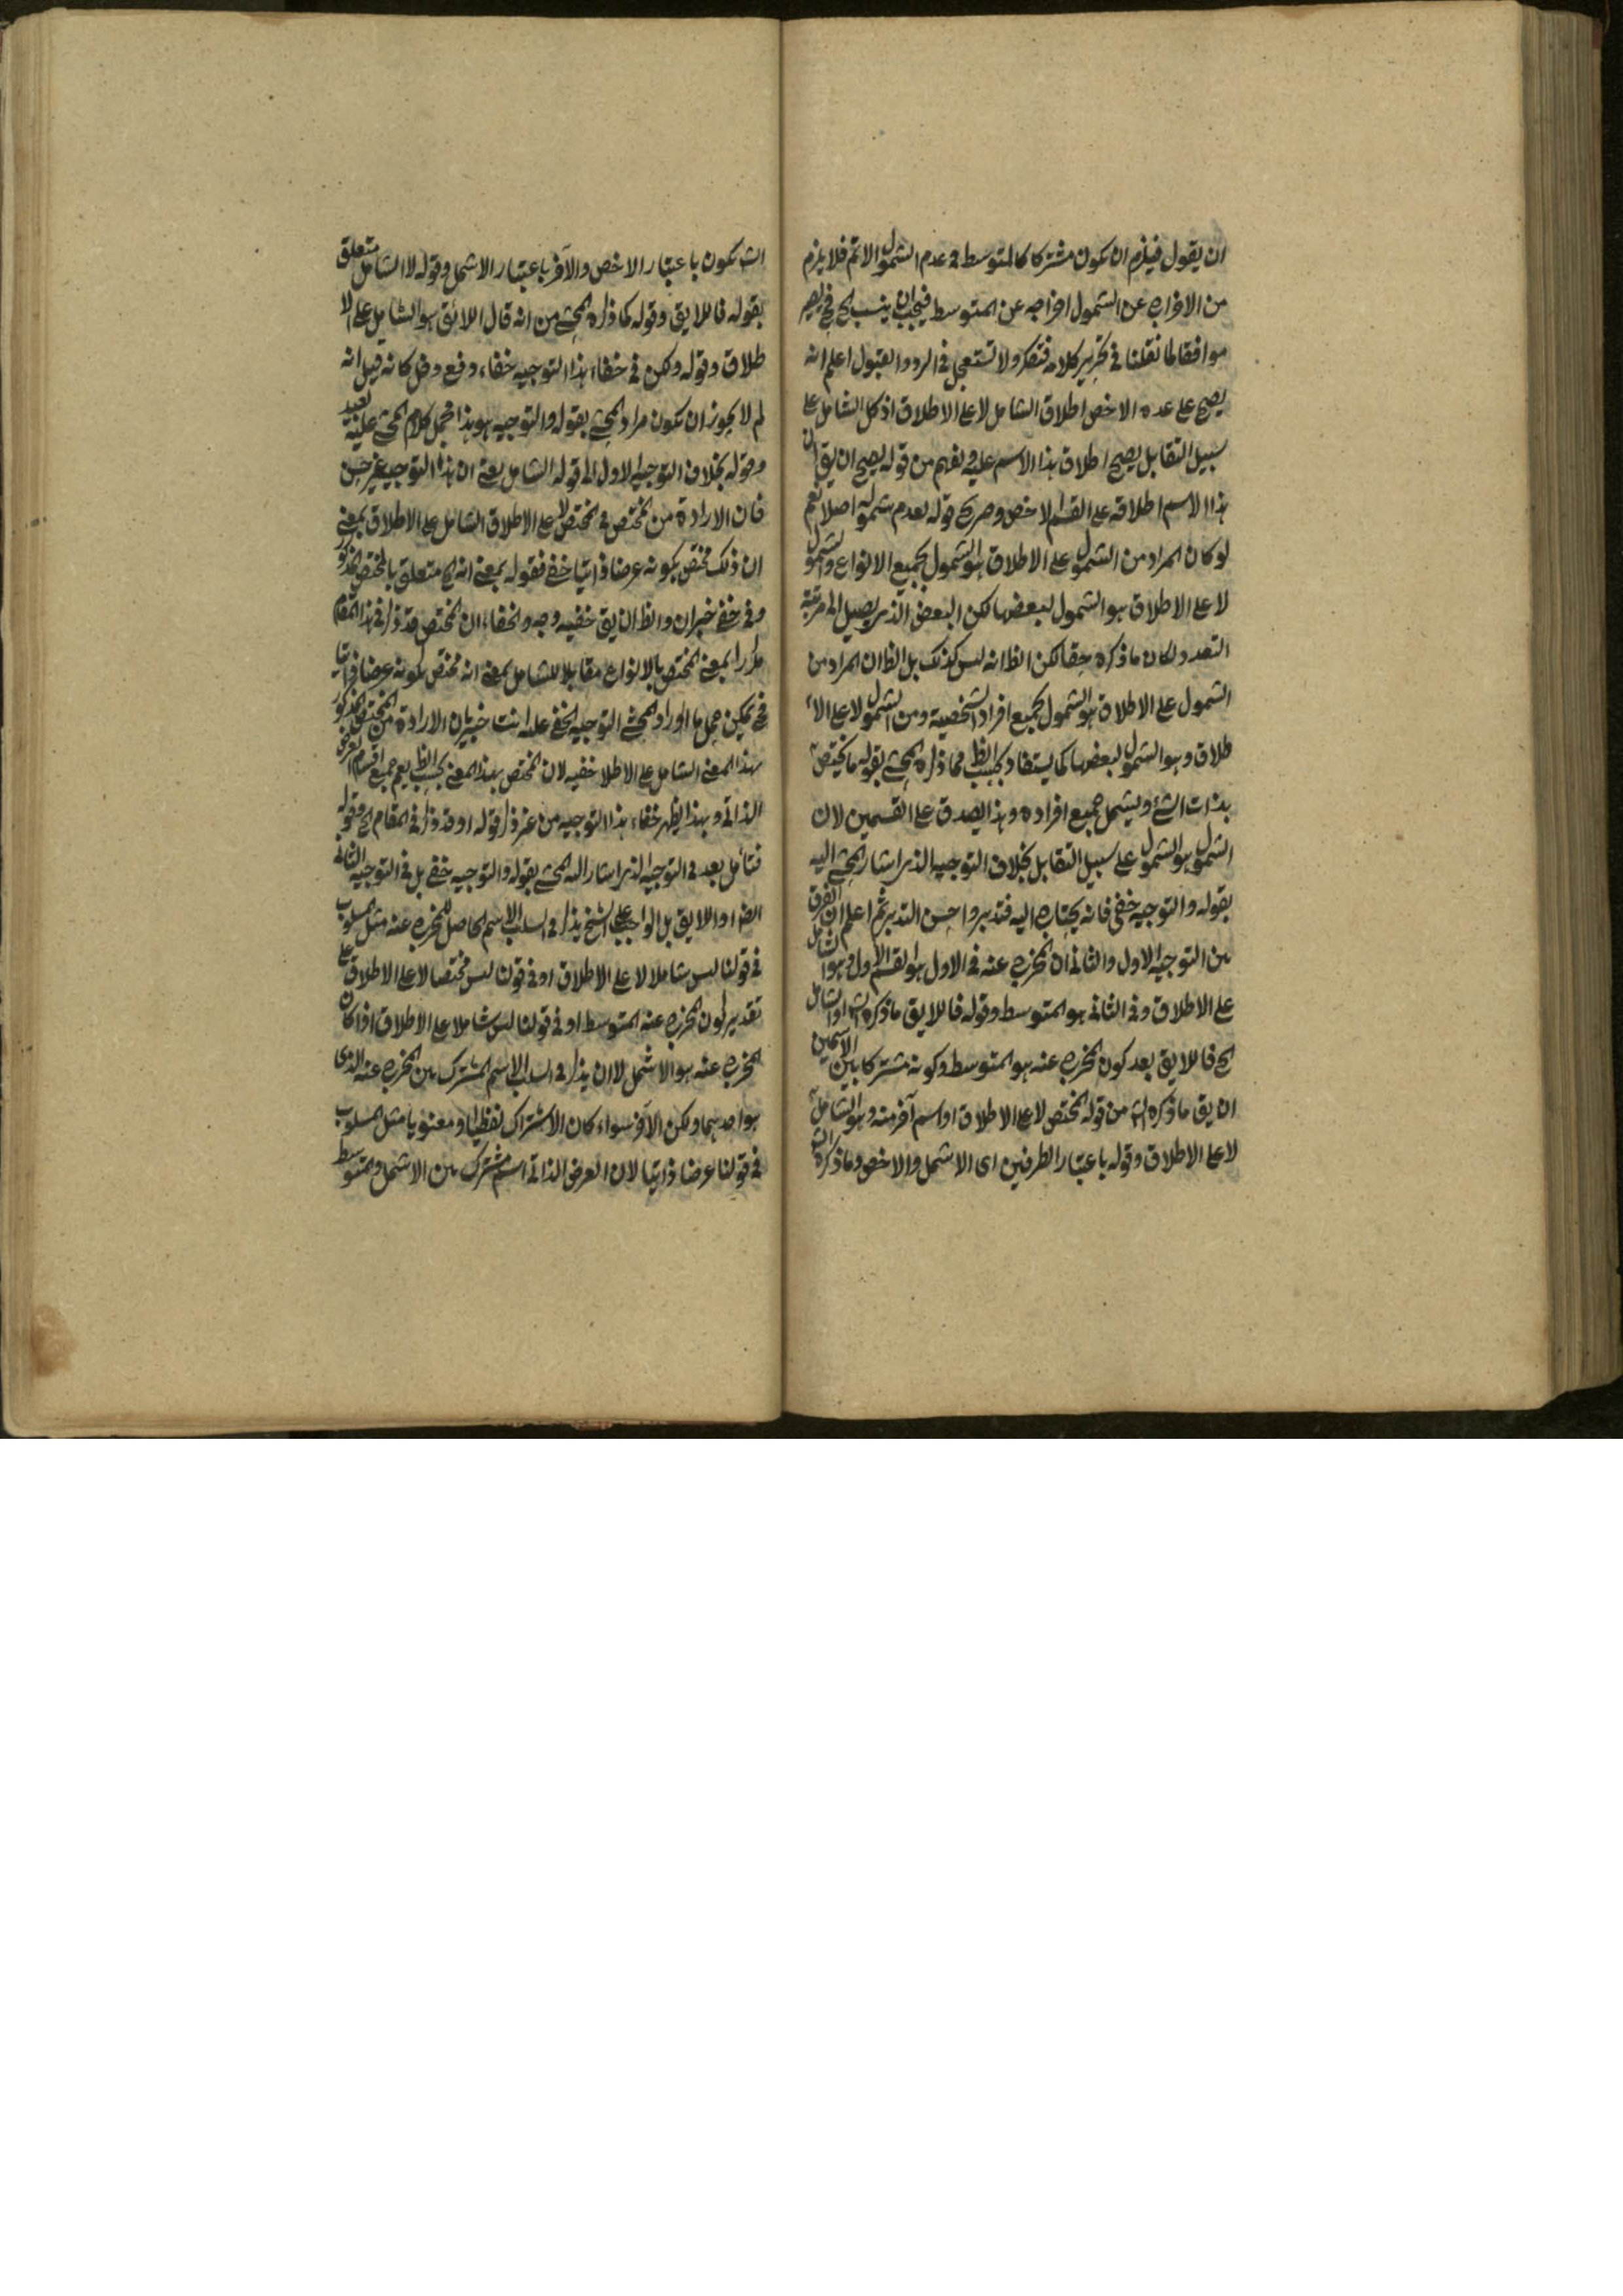 ان يقول فيلزم ان يكون مشتركا كالمتوسط في عدم الشمول الاتم فلا يلزم
من الاخراج عن الشمول اخراجه عن المتوسط فيجب ان ينسب الخ
موافقا لما نقلنا في تحرير كلامه فتفكر ولا تستعجل في الرد والقبول اعلم انه
يصح على عده الاخص اطلاق الشامل لا على الاطلاق اذ كل الشامل على
سبيل التقابل يصح اطلاق هذا الاسم عليه ويفهم من قوله يصح ان يق ان
هذا الاسم اطلاقه على القسم الاخص وصريح قوله بعدم شموله اصلا نعم
لو كان المراد من الشمول على الاطلاق هو الشمول لجميع الانواع والشمول
لا على الاطلاق هو الشمول لبعضها لكن البعض الذي يصيل الى مرتبة
التعدد لكان ما ذكره حقا لكن الظ انه ليس كذلك بل الظ ان المراد من
الشمول على الاطلاق هو الشمول لجميع افراد الشخصية ومن الشمول لا على الا
طلاق وهو الشمول لبعضها كما يستفاد بحسب الظ مما ذكره المحشي بقوله ما يختص
بذات الشئ ويشمل جميع افراده وهذا يصدق على القسمين لان
الشمول هو الشمول على سبيل التقابل بخلاف التوجيه الذي اشار المحشي اليه
بقوله والتوجيه خفي فانه يحتاج اليه فتدبر واحسن التدبر ثم اعلم ان الفرق
بين التوجيه الاول والثاني ان المخرج عنه في الاول هو القسم الاول وهو الشامل
على الاطلاق وفي الثاني هو المتوسط وقوله فاللايق ما ذكره الش او الشامل
الخ فاللايق بعد كون المخرج عنه هو المتوسط وكونه مشتركا بين الاسمين
ان يق ما ذكره الش من قوله المختص لا على الاطلاق او اسم آخر منه وهو الشامل
لا على الاطلاق وقوله باعتبار الطرفين اى الاشمل والاخص وما ذكره الش
الش يكون باعتبار الاخص والآخر باعتبار الاشمل وقوله لا الشامل متعلق
بقوله فاللايق وقوله كما ذكره المحشي من انه قال اللائق هو الشامل على الا
طلاق وقوله ولكن في خفاء هذا التوجيه خفاء، دفع دخل كانه قيل انه
لم لا يجوز ان يكون مراد المحشي بقوله والتوجيه هو هذا فحمل كلام المحشي عليه بعيد
وقوله بخلاف التوجيه الاول الى قوله الشامل يعني ان هذا التوجيه غير حسن
فان الارادة من المختص في المختص لا على الاطلاق الشامل على الاطلاق بمعنى
ان ذلك مختص بكونه عرضا ذاتيا خفي فقوله بمعنى انه الخ متعلق بالمختص المذكور
وفي خفي خبر ان والظ ان يق خفيه وجه والخفاء، ان المختص قد ذكر في هذا المقام
مكررا بمعنى المختص بالانواع مقابلا للشامل بمعنى انه مختص بكونه عرضا ذاتيا
يمكن حمل ما اوراد المحشي التوجيه الخفي عليه انت خبير بان الارادة من المختص المذكور
بهذا المعنى الشامل على الاطلا خفيه لان المختص بهذا المعنى بحسب الظ يعم جميع اقسام العرض
الذاتي وبهذا يظهر خفاء هذا التوجيه من غير ذكر قوله او قد ذكر في المقام الخ وقوله
فتأمل بعد في التوجيه الذي اشار اليه المحشي بقوله والتوجيه خفي بل في التوجيه الثاني
ايضا او اللايق بل الواجب على الشيخ يذكر في السلب الاسم الحاصل للمخرج عنه مثل المسلوب
في قولنا ليس شاملا لا على الاطلاق او في قولنا ليس مختصا لا على الاطلاق على
تقدير كون المخرج عنه المتوسط او في قولنا ليس شاملا على الاطلاق اذا كان
المخرج عنه هو الاشمل لا ان يذكر في السلب الاسم المشترك بين المخرج عنه الذى
هو احدهما ولكن الآخر سواء كان الاشتراك لفظيا او معنويا مثل المسلوب
في قولنا عرضا ذاتيا لان العرض الذاتي اسم مشترك بين الاشمل والمتوسط